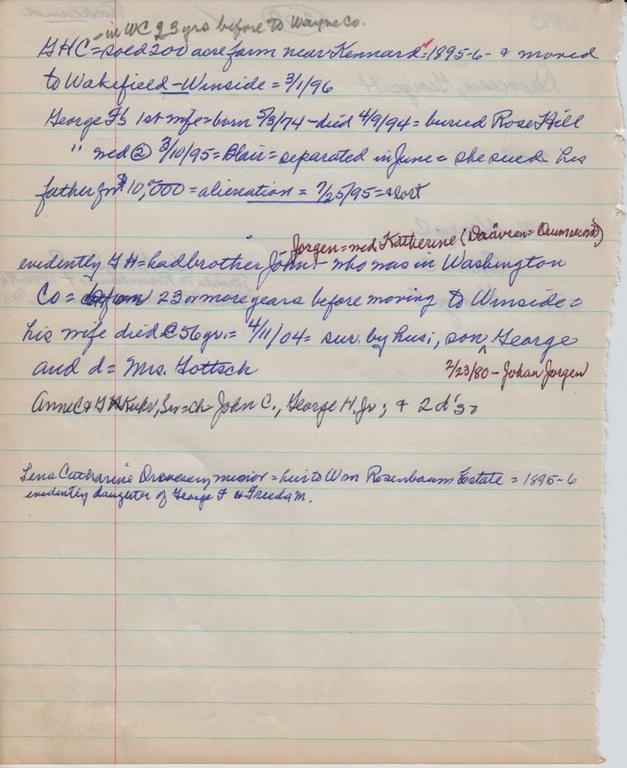 -in WC 23 yrs before to Wayne Co.
GHC = sold 200 acre farm near Kennard = 1895-6- & moved
to Wakefield - Winside = 3/1/96
George F's 1st wife = born 5/3/74 - died 4/9/94 = buried Rose Hill
" wed @ 3/10/95 = Blair = separated in June = she sued his
father for $10,000 = alienation = 7/25/95 = lost
- Jorgen = wed Katherine (
evidently GH = had brother John - who was in Washington
Co = 23 or more years before moving to Winside =
his wife died @ 56 yr. = 4/11/04 = sur. by husb, son ^ George
and d = Mrs. Gottsch
2/23/80 - Johan Jorgen
Anne C & G H Kuhr, Sr = ch = John C., George H. Jr; & 2 d's =
Lena Catharine minor = heir to Wm Rosenbaum Estate = 1895-6
evidently daughter of George F & Freeda M.